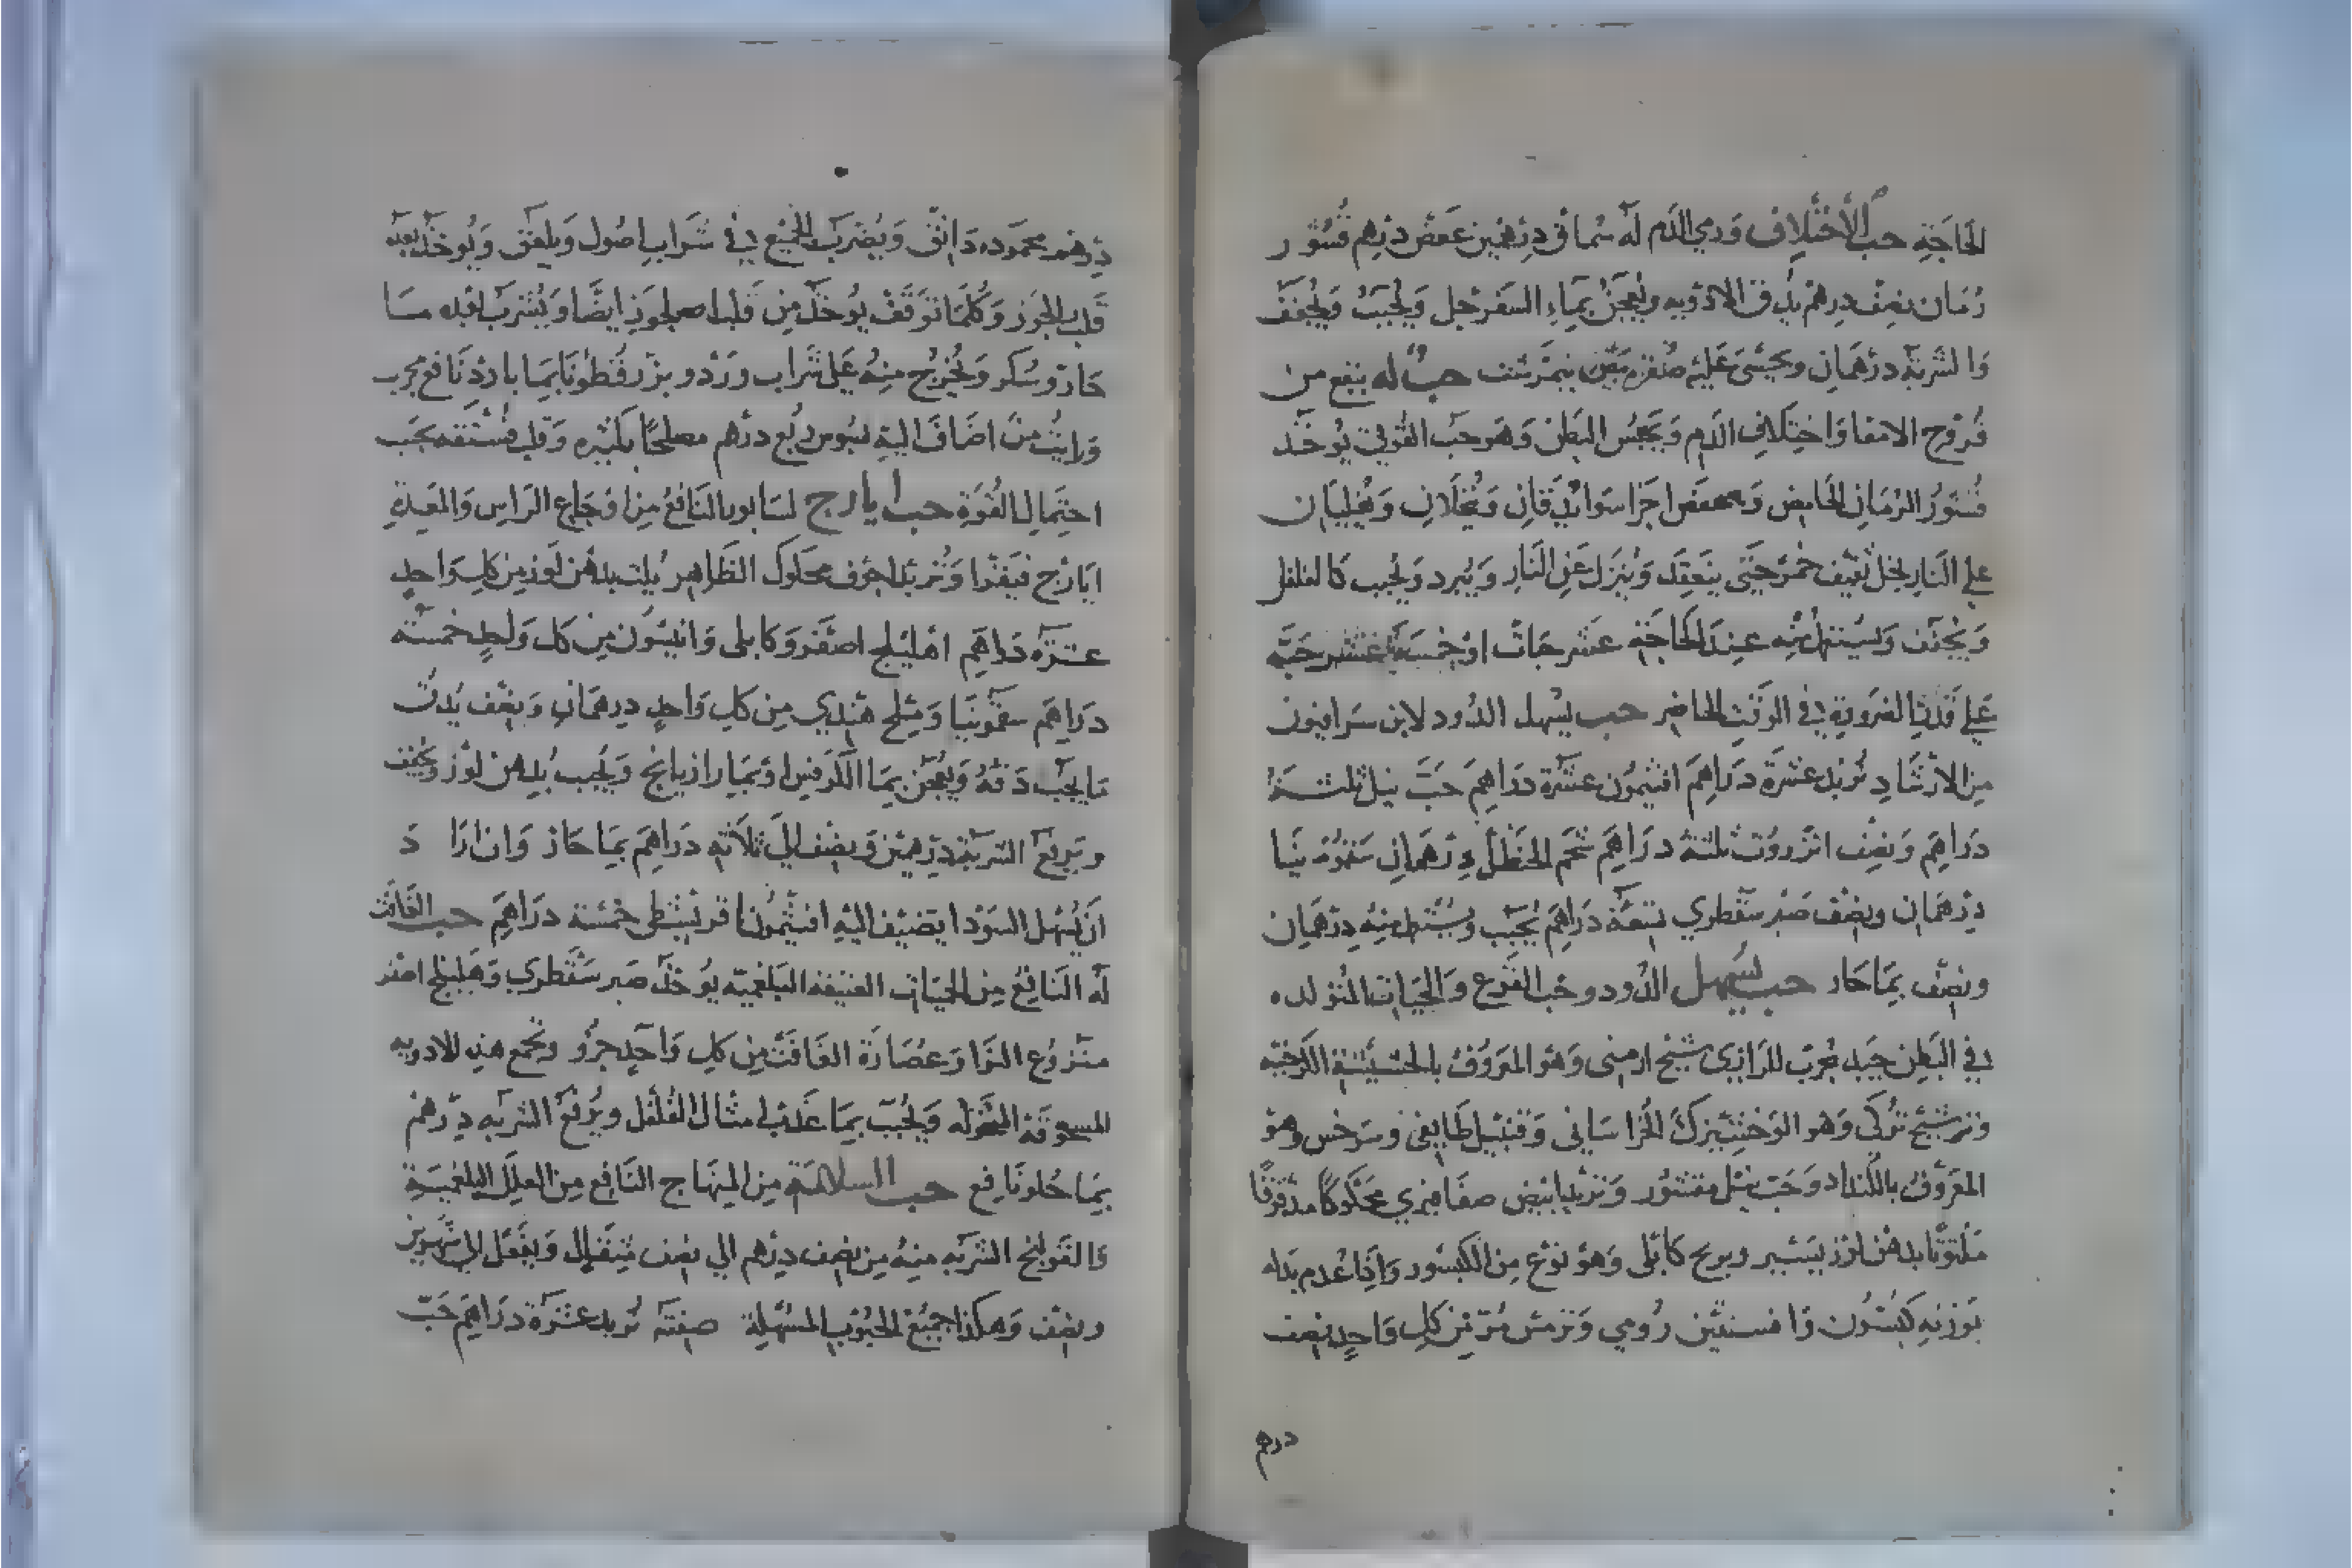 الحاجة حب الاختلاف ورمي الدم له سماق درهمين عفص درهم قشور
رمان نصف درهم يدق الادويه ويعجن بماء السفرجل ويحبب ويجفف
والشربة درهمان ويحسى عليه صفرة بيض نيمرشت حب له ينفع من
قروح الامعا واختلاف الدم ويحبس البطن وهو حب القوي يوخذ
قشور الرمان الحامض وعفص اجزا سوا يدقان وينخلان ويغليان
على النار بخل ثقيف خمر حتى ينعقد وينزل عن النار ويبرد ويحبب كالفلفل
ويجفف ويستعمل منه عند الحاجة عشر حبات او خمسة عشر حبة
على قدر الضرورة في الوقت الحاضر حب يسهل الدود لابن سرابيون
من الارشاد تربد عشرة دراهم افتيمون عشرة دراهم حب نيل ثلثة
دراهم ونصف انزروت ثلثة دراهم شحم الحنظل درهمان سقمونيا
درهمان ونصف صبر سقطري تسعة دراهم يحبب ويستعمل منه درهمان
ونصف بما حار حب يسهل الدود وحب القرع والحيات المتولده
في البطن جيد مجرب للرازي شيح ارمني وهو المعروف بالحشيشة
شيح تركي وهو الخراساني وقنبيل طايفي وسرخس وهو
المعروف بالكيلدارو وحب نيل مقشور وتربد ابيض محكوكا مدقوقا
ملتوتا بدهن لوز وبرنج كابلي وهو نوع من واذا عدم بدله
بوزنه وافسنتين رومي وترمس مر من كل واحد نصف
درهم
درهم محموده دانق ويضرب الجميع في شراب اصول ويلعق ويوخذ بعده
قلب الجوز وكلما توقف يوخذ من قلب الجوز ايضا ويشرب فوقه ما
حار وسكر ويخرج منه على شراب ورد وبزر قطونا بما بارد نافع مجرب
ورايت من اضاف اليه ربع درهم مصلحا بكثيره وقلب فستقه بحب
احتمال القوة حب ايارج لسابور النافع من اوجاع الراس والمعدة
ايارج فيقرا وتربد اجوف محكوك الظاهر يلت بدهن لوز من كل واحد
عشرة دراهم اهليلج اصفر وكابلى وانيسون من كل واحد خمسة
دراهم سقمونيا وملح هندي من كل واحد درهمان ونصف يدق
ما يجب دقه ويعجن بما الكرفس او بما رازيانج ويحبب بدهن لوز ويجفف
ويرفع الشربة درهمين ونصف الى ثلاثة دراهم بما حار وان اراد
ان يسهل السودا يضيف اليه افتيمونا قريطى خمسة دراهم حب الغافت
له النافع من الحميات العتيقة البلغمية يوخذ صبر سقطري وهليلج اصفر
منزوع النوا وعصارة الغافت من كل واحد جزو وتجمع هذه الادويه
المسحوقة المنخوله ويحبب بما عذب امثال الفلفل ويرفع الشربه درهم
بما حار نافع حب السلامة من المنهاج النافع من العلل البلغمية
والقولنج الشربه منه من نصف درهم الى نصف مثقال ويفعل الى شهرين
ونصف وهكذا جميع الحبوب المسهلة صفته تربد عشرة دراهم حب